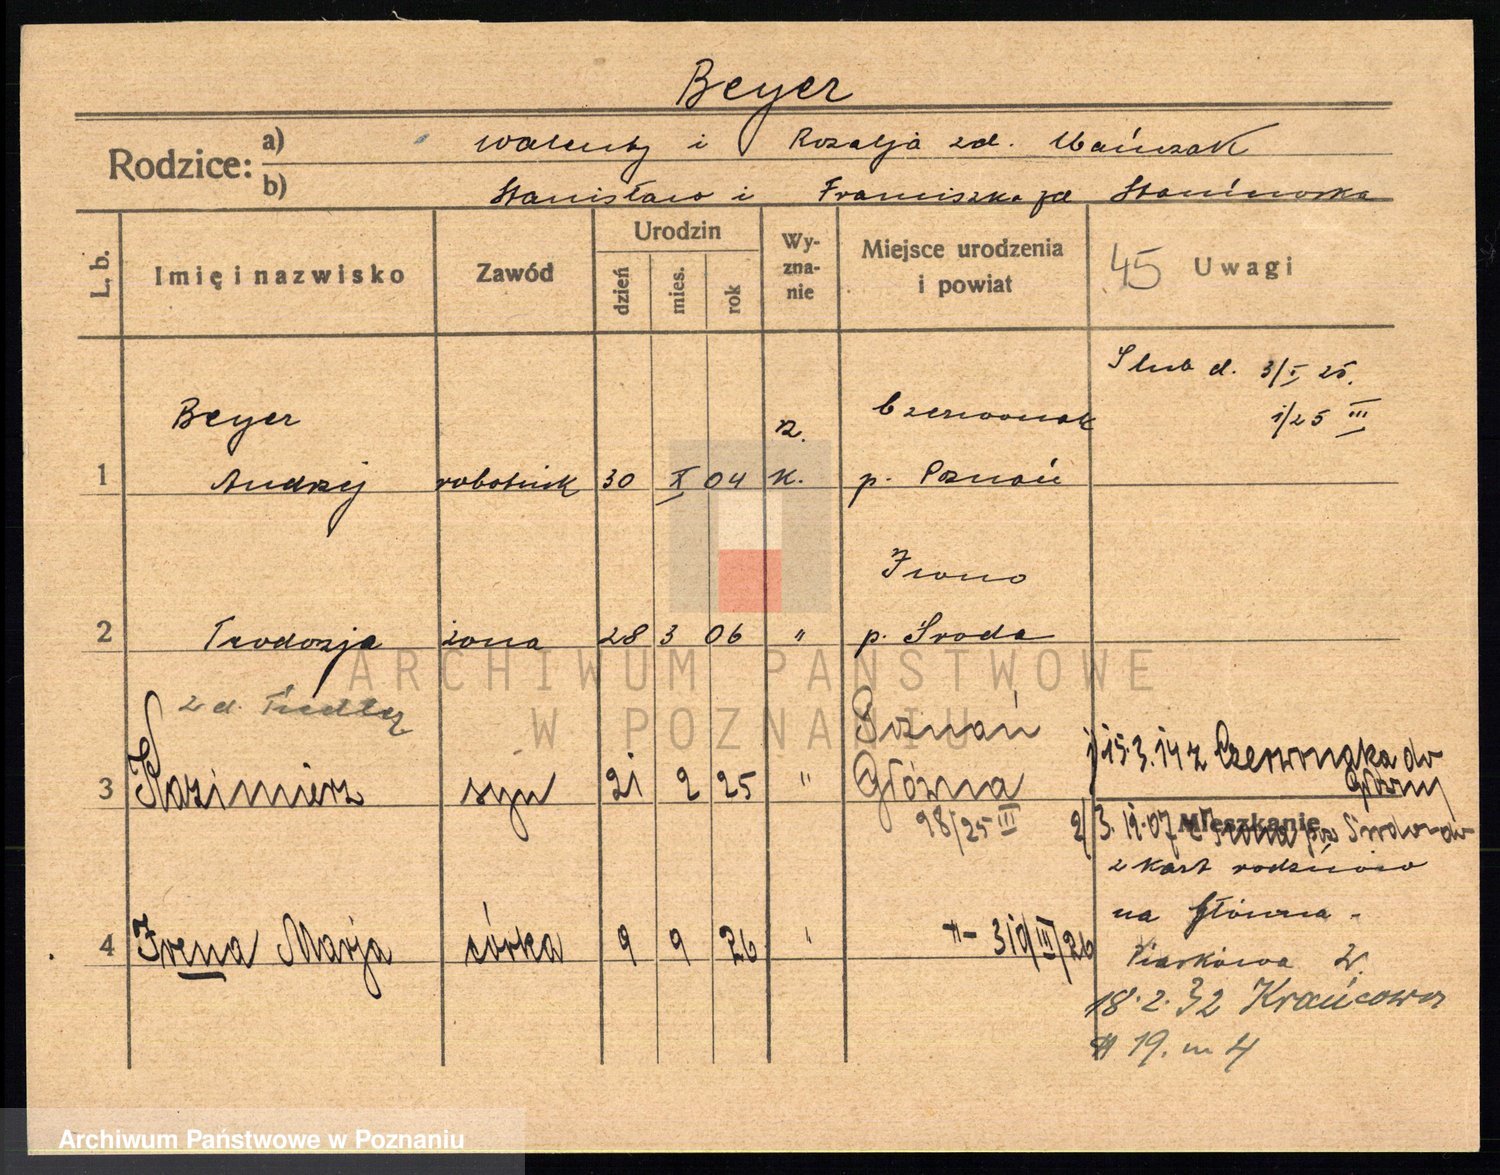 Beyer
Rodzice:
a) Walenty i Rozalja zd. Mańczak
b) Stanisław i Franciszka zd
L. b.
Imię i nazwisko
Zawód
Urodzin
dzień
mies.
rok
Wy-
zna-
nie
Miejsce urodzenia
i powiat
45 Uwagi
Ślub d. 3/I 25.
1/25 III
Beyer
1 Andrzej robotnik 30 X 04 R. K. Czerwonak p. Poznań
Iwno
2 Teodozja żona 28 3 06 " p. Środa
zd. Fiedler
Poznań
3 Kazimierz syn 21 2 25 " Główna
98/25 III
1) 15.3.14 z Czerwonaka do
Główny
Mieszkanie
2/ 3.12.07 z Iwna pow Środa do
z kart rodzinno
na Główna -
4 Irena Marja córka 9 9 26 " -"- 310/III/26
Piaskowa 2.
18.2.32 Krańcowa
19. m 4
ARCHIWUM PAŃSTWOWE
W POZNANIU
Archiwum Państwowe w Poznaniu